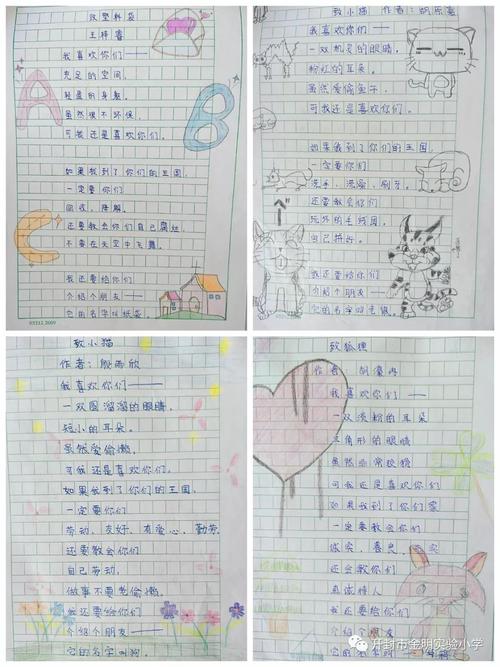 致塑料袋
王梓睿
我喜欢你们——
充足的空间，
轻盈的身躯。
虽然很不环保，
可我还是喜欢你们。
如果我到了你们的王国，
一定要你们
回收、降解。
还要教会你们自己腐烂，
不要在天空中飞舞。
我还要给你们
介绍个朋友——
它的名字叫纸袋。
A
B
C
致小猫 作者：胡乐嘉
我喜欢你们——
一双机灵的眼睛，
粉红的耳朵。
虽然爱偷鱼子，
可我还是喜欢你们。
如果我到了你们的王国，
一定要你们
洗手、洗澡、刷牙。
还要教会你们
玩外的毛线团，
自己
我还要给你们
介绍个朋友——
它的名字叫
致小猫
作者：殷雨欣
我喜欢你们——
一双圆溜溜的眼睛，
短小的耳朵。
虽然爱偷懒，
可我还是喜欢你们。
如果我到了你们的王国，
一定要你们
劳动、友好、有爱心、勤劳。
还要教会你们
自己劳动，
做事不要老偷懒。
我还要给你们
介绍个朋友——
它的名字叫狗。
致狐狸
作者：胡
我喜欢你们——
一双淡粉的耳朵
三角形的眼睛
虽然非常狡猾
可我还是喜欢你们
如果我到了你们家
一定要教会你们
诚实、善良、
还会教你们
真诚待人
我还要给你们
介绍个朋友——
它的名
开封市金明实验小学